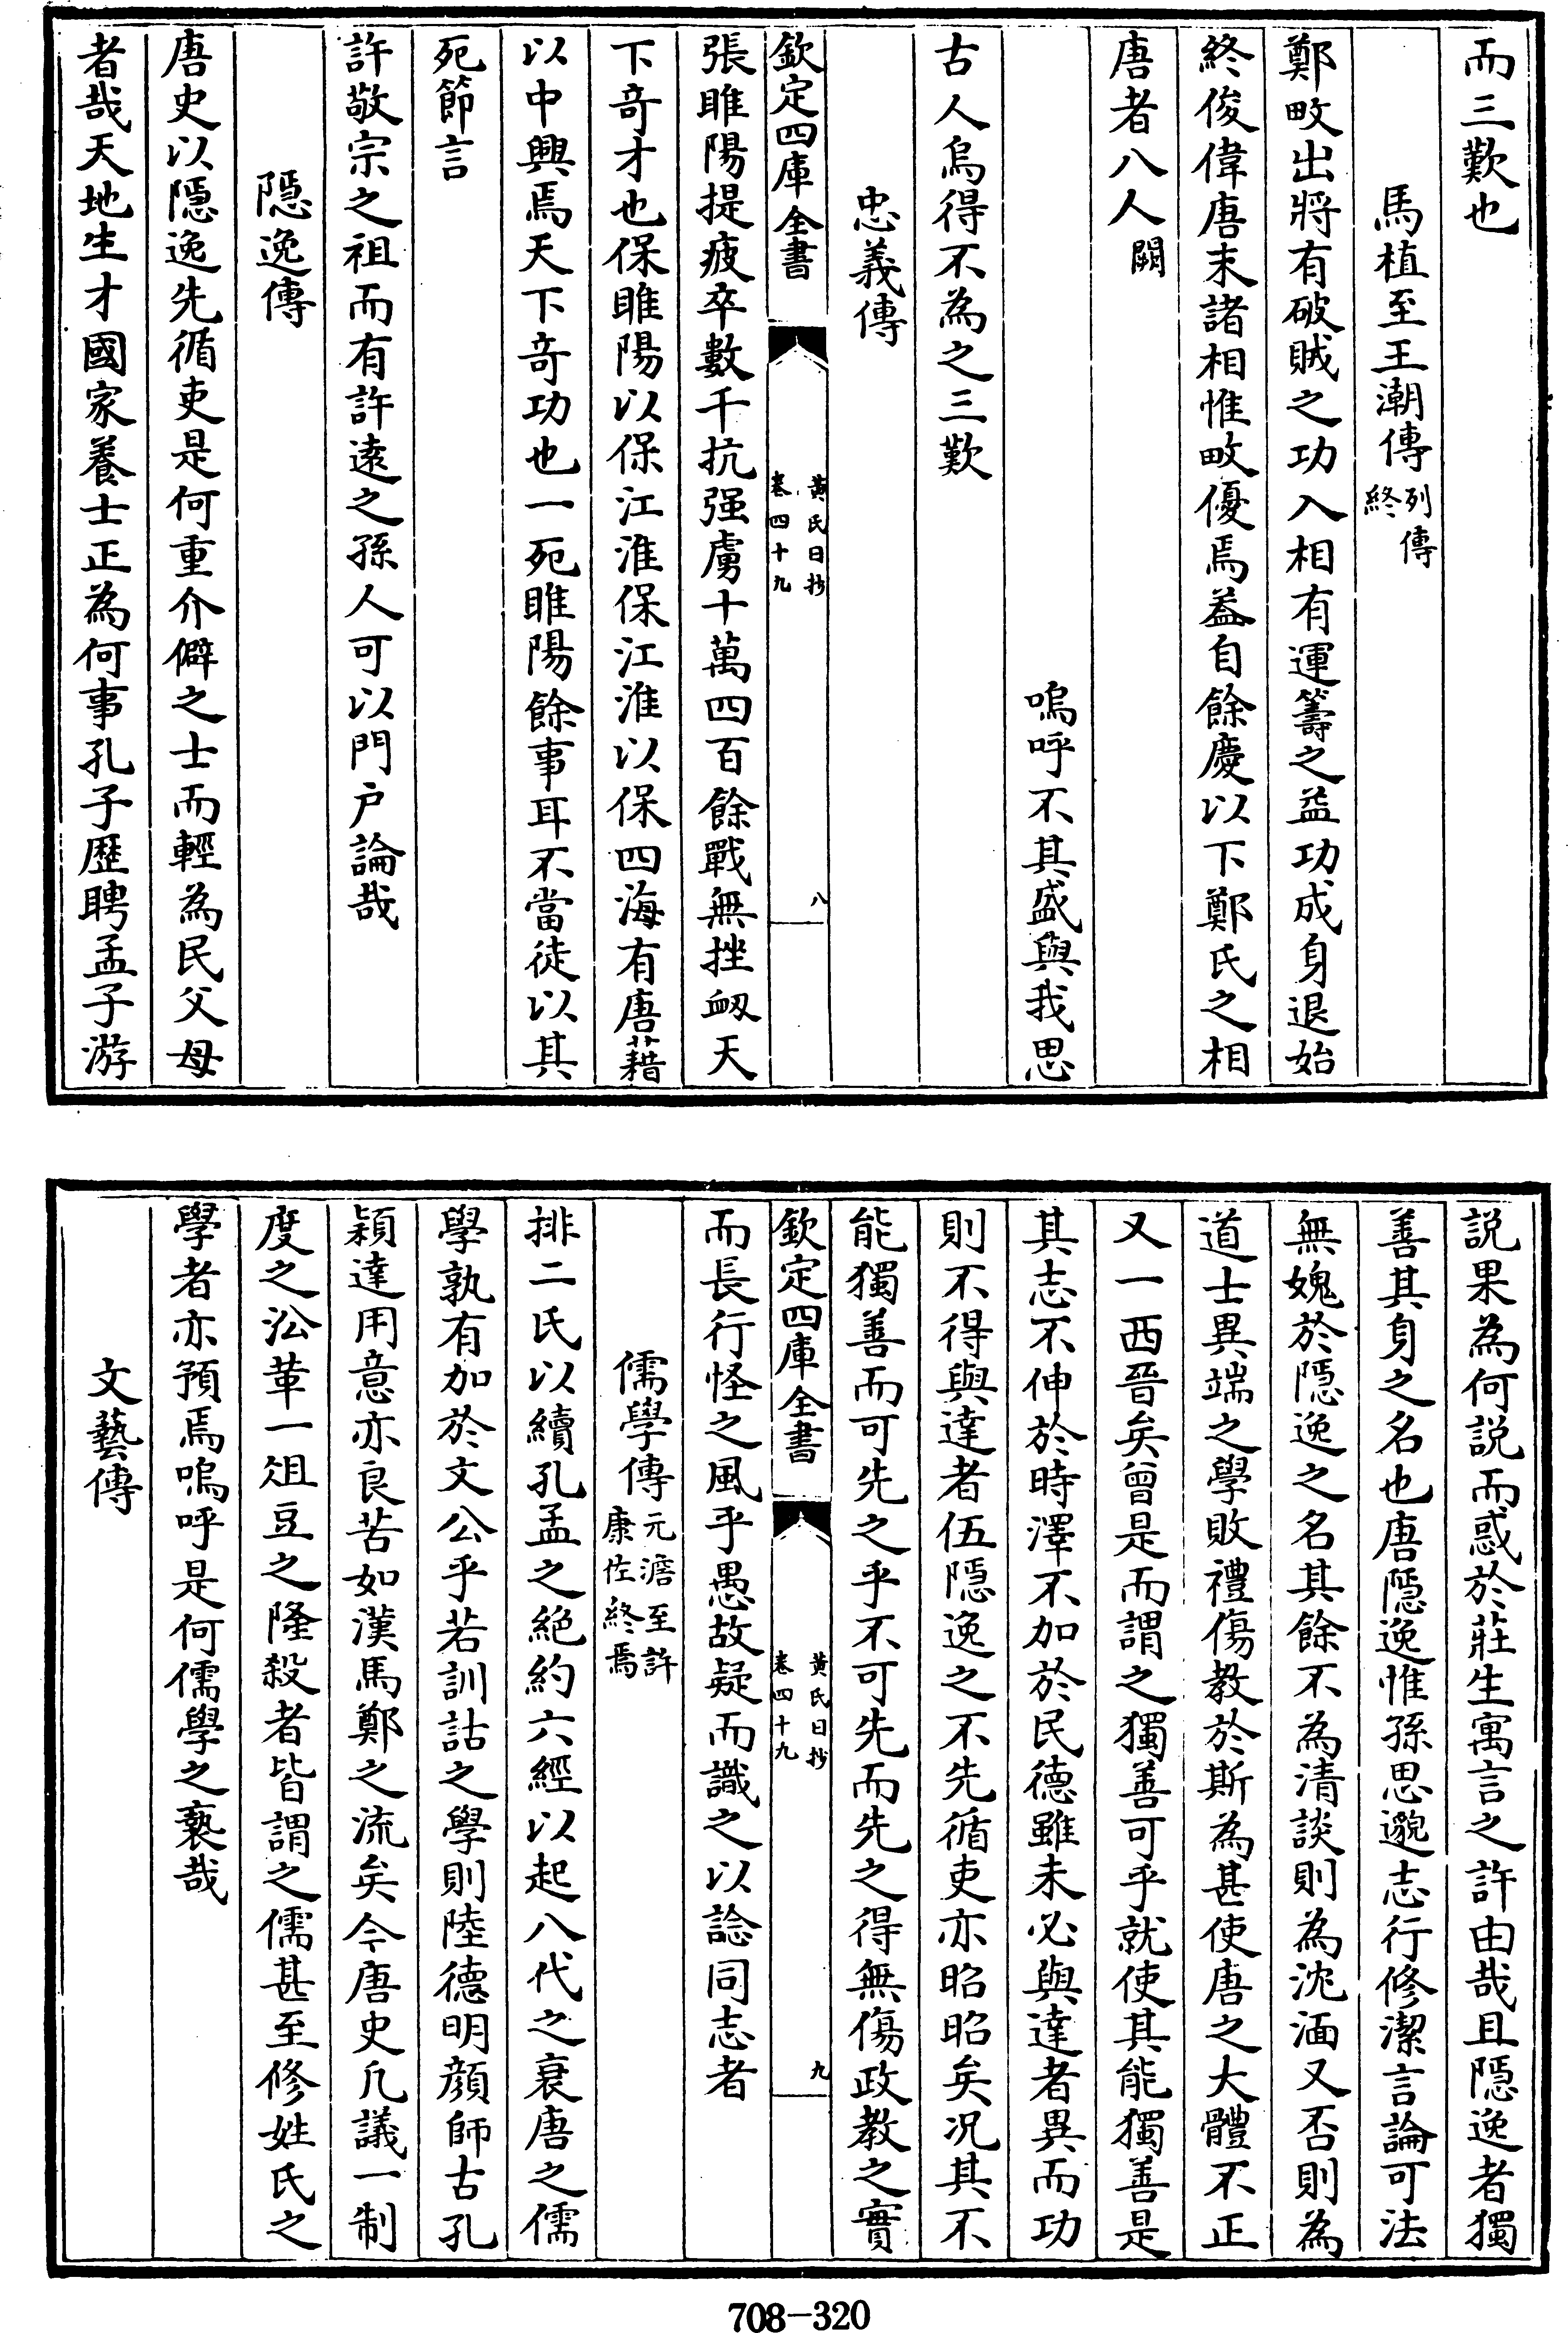 而三歎也
馬植至王潮傳列傳終
鄭畋出將有破賊之功入相有運籌之益功成身退始
終俊偉唐末諸相惟畋優焉葢自餘慶以下鄭氏之相
唐者八人闕
嗚呼不其盛與我思
古人烏得不為之三歎
忠義傳
欽定四庫全書
黃氏日抄
卷四十九
八
張睢陽提疲卒數千抗强虜十萬四百餘戰無挫衂天
下竒才也保睢陽以保江淮保江淮以保四海有唐藉
以中興焉天下竒功也一死睢陽餘事耳不當徒以其
死節言
許敬宗之祖而有許逺之孫人可以門户論哉
隠逸傳
唐史以隠逸先循吏是何重介僻之士而輕為民父母
者哉天地生才國家養士正為何事孔子歴聘孟子游
説果為何説而惑於莊生寓言之許由哉且隠逸者獨
善其身之名也唐隠逸惟孫思邈志行修潔言論可法
無媿於隠逸之名其餘不為清談則為沈湎又否則為
道士異端之學敗禮傷教於斯為甚使唐之大體不正
又一西晉矣曾是而謂之獨善可乎就使其能獨善是
其志不伸於時澤不加於民德雖未必與達者異而功
則不得與達者伍隠逸之不先循吏亦昭昭矣况其不
能獨善而可先之乎不可先而先之得無傷政教之實
欽定四庫全書
黃氏日抄
卷四十九
九
而長行怪之風乎愚故疑而識之以諗同志者
儒學傳元澹至許康佐終焉
排二氏以續孔孟之絶約六經以起八代之衰唐之儒
學孰有加於文公乎若訓詁之學則陸德明顔師古孔
穎達用意亦良苦如漢馬鄭之流矣今唐史凡議一制
度之㳂革一俎豆之隆殺者皆謂之儒甚至修姓氏之
學者亦預焉嗚呼是何儒學之褻哉
文藝傳
708-320